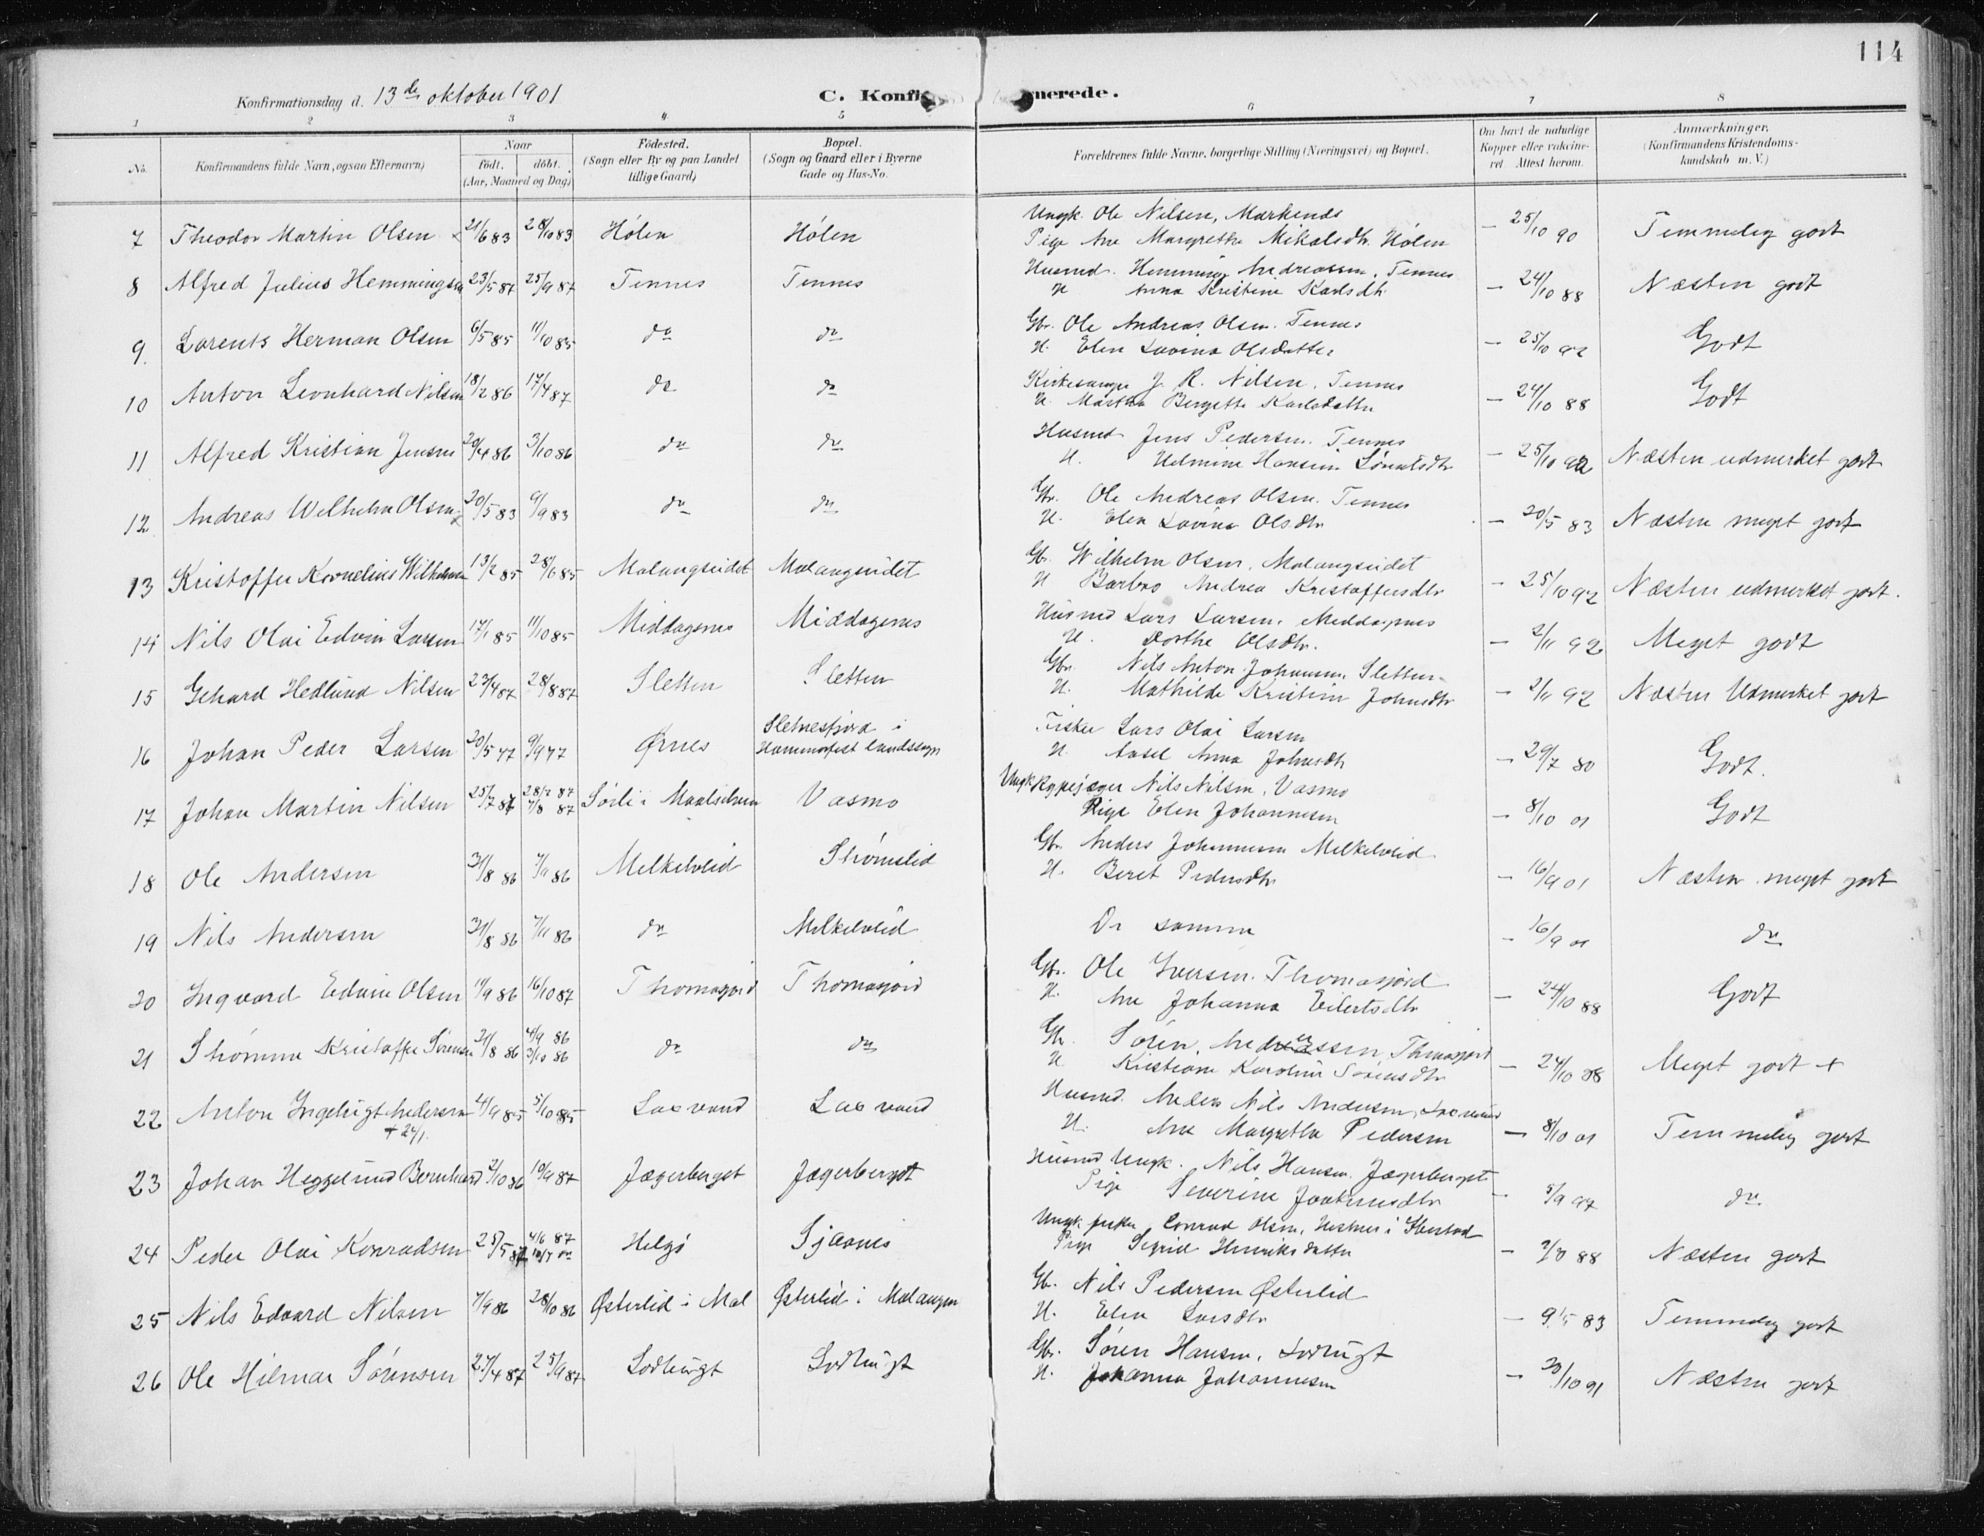 114
Konfirmationsdag d. 13de oktober 1901
C. Konfi
nerede.
1 2 3 4 5 6 7 8
No.
Konfirmandens fulde Navn, ogsaa Efternavn)
Naar
født. døbt.
(Aar, Maaned og Dag)
Fødested.
(Sogn eller By og paa Landet
tillige Gaard)
Bopæl.
(Sogn og Gaard eller i Byerne
Gade og Hus-No.
Forældrenes fulde Navne, borgerlige Stilling (Næringsvei) og Bopæl.
Om havt de naturlige
Kopper eller vakcine-
ret. Attest herom.
Anmærkninger.
(Konfirmandens Kristendoms-
kundskab m. V.)
7 Theodor Martin Olsen 21/6 83 28/10 83 Hølen Hølen Ungk. Ole Nilsen, Markenes
Pige Ane Margrethe Mikalsdtr Hølen — 25/10 90 Temmelig godt
8 Alfred Julius Hemmingsen 23/5 87 25/9 87 Tennes Tennes Husmd. Hemming Andreassen, Tennes
H Anna Kristine Karlsdtr — 24/10 88 Næsten godt
9. Lorents Herman Olsen 6/5 85 11/10 85 do do Gbr. Ole Andreas Olsen. Tennes
H. Elen Lovina Olsdatter — 25/10 92 Godt
10 Anton Leonhard Nilsen 18/2 86 17/4 87 do do Kirkesanger J. R. Nilsen, Tennes
H. Martha Bergette Karlsdatter — 24/10 88 Godt
11 Alfred Kristian Jensen 20/4 86 3/10 86 do do Husmd Jens Pedersen. Tennes
H. Hansine — 25/10 92 Næsten udmerket godt
12. Andreas Wilhelm Olsen 20/5 83 9/9 83 do do Gbr. Ole Andreas Olsen. Tennes
H. Elen Lovina Olsdtr — 20/5 83 Næsten meget godt
13 Kristoffer Kornelius Wilhelmsen 13/2 85 28/6 85 Malangseidet Malangseidet Gbr. Wilhelm Olsen, Malangseidet
H Barbro Andrea Kristoffersdtr — 25/10 92 Næsten udmerket godt.
14 Nils Olai Edvin Larsen 17/1 85 11/10 85 Middagsnes Middagsnes Husmd Lars Larsen, Meddagsnes
H. Dorthe Olsdtr. — 2/11 92 Meget godt
15 Gehard Hedlund Nilsen 23/4 87 28/8 87 Sletten Sletten Gbr. Nils Anton Johansen, Sletten
H. Mathilde Kristine Johnsdtr — 2/11 92 Næsten Udmerket godt
16 Johan Peder Larsen 20/5 77 9/9 77 Ørnes Sletnesfjord i
Hammerfest landssogn Fisker Lars Olai Larsen
H Anna Johnsdtr — 29/7 80 Godt.
17 Johan Martin Nilsen 25/7 87 28/7 87
7/8 87 Sørli i Maalselven Vasmo Ungk Rypejæger Nils Nilsen, Vasmo
Pige Elen Johannesen — 8/10 01 Godt
18 Ole Andersen 31/8 86 7/11 86 Melkelvlid Strømslid Gbr. Anders Johannesen Melkelvlid
H. Beret Pedersdtr — 16/9 01 Næsten meget godt
19 Nils Andersen 31/8 86 7/11 86 do Melkelvlid De samme — 16/9 01 do
20 Ingvard Edvin Olsen 11/9 86 16/10 87 Thomasjord Thomasjord Gbr. Ole Iversen. Thomasjord
H. Ane Johanna Eilertsdtr — 24/10 88 Godt
21 Strømme Kristoffer Sørensen 31/8 86 4/9 86
3/10 86 do do Gbr. Søren Andreassen, Thomasjord
H Kristiane Karoline Sørensdtr — 24/10 88 Meget godt +
22 Anton Ingebrigt Andersen 4/9 85 5/10 85 Laxvand Laxvand
+ 24/1. Husmd. Anders Nils Andersen, Laxvand
H. Ane Margretha Pedersen — 8/10 01 Temmelig godt
23 Johan Heggelund Bernhard 2/10 86 19/9 87 Jægerberget Jægerberget Husmd Ungk. Nils Hansen. Jægerberget
Pige Severine — 5/9 97 do
24 Peder Olai Konradsen 25/5 87 4/6 87 Helgø Sjaanes Ungk. fisker Conrad Olsen, i Ibestad
Pige Sigrid Henriksdatter — 88 Næsten godt
25 Nils Edvard Nilsen 7/9 86 28/10 86 Østerlid i Mal Østerlid i Malangen Gbr. Nils Pedersen Østerlid
H. Elen Larsdtr — 9/5 83 Temmelig godt
26 Ole Hilmar Sørensen 27/4 87 25/9 87 Lodbugt Lodbugt Gbr. Søren Hansen, Lodbugt
H. Johanna Johannesen — 23/10 91 Næsten godt